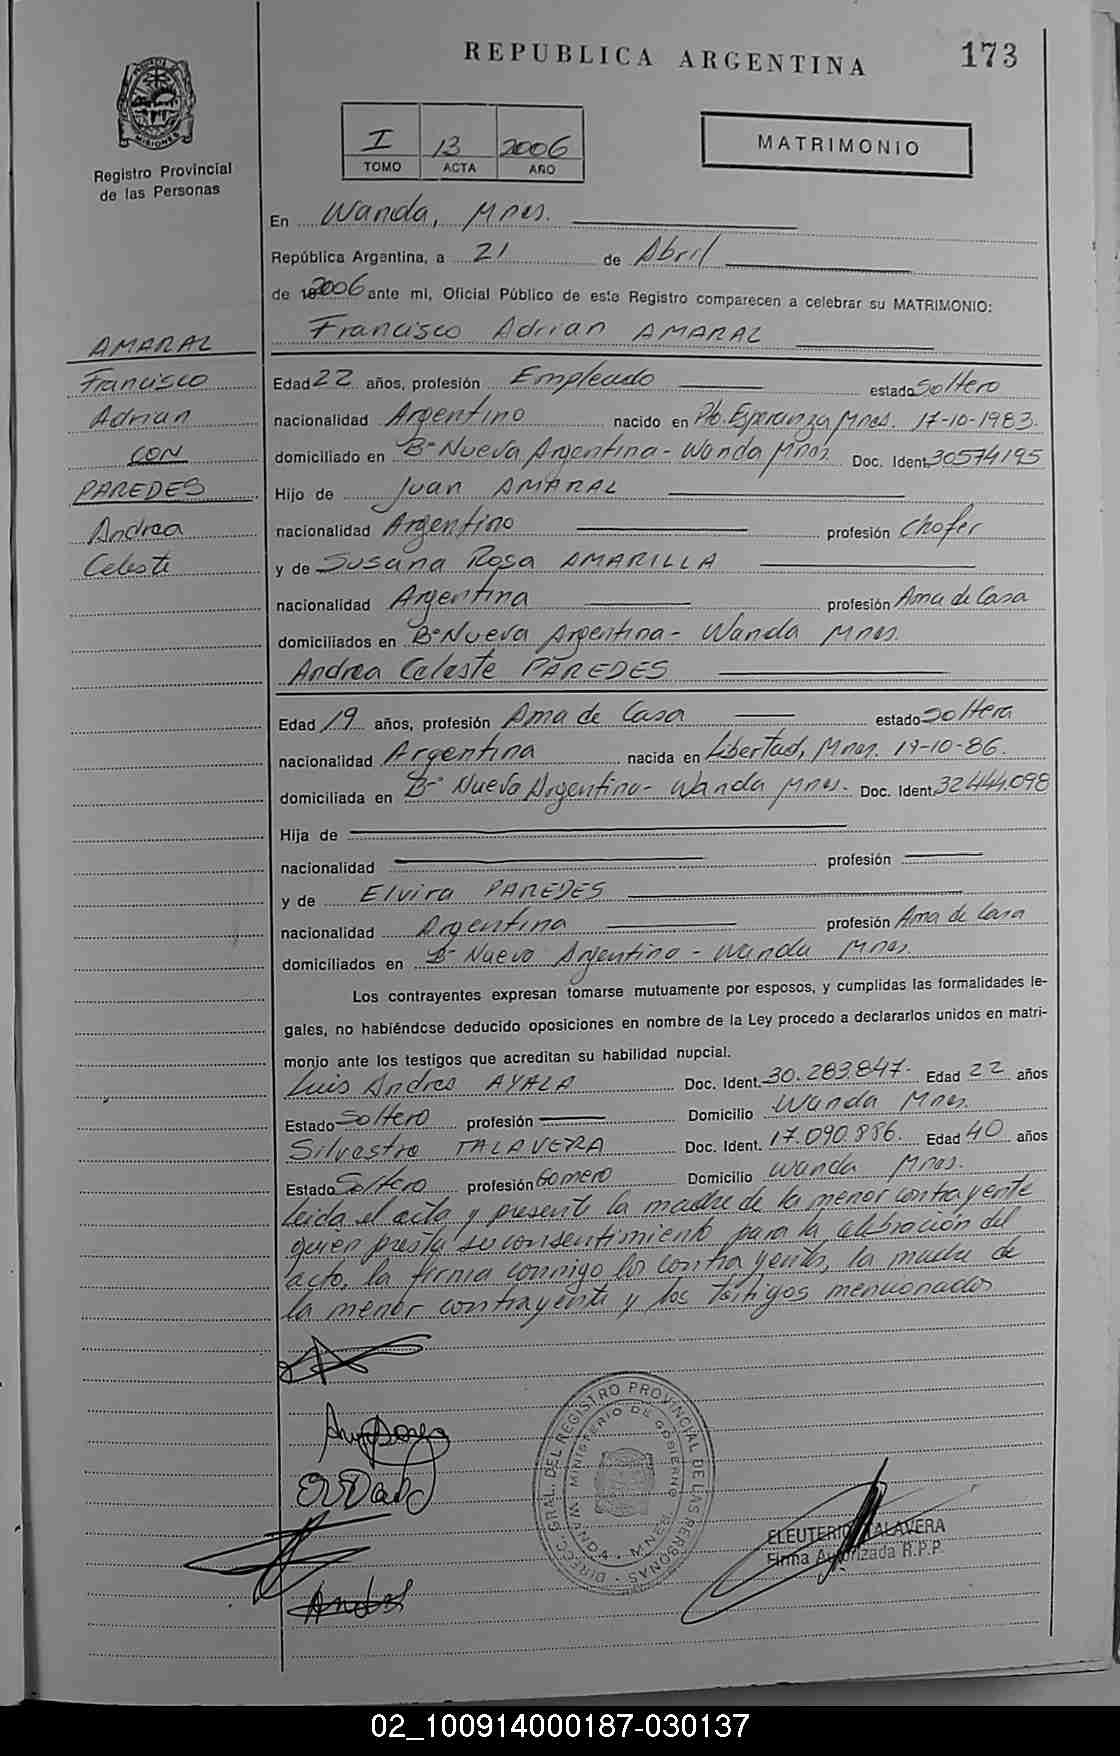 REPUBLICA ARGENTINA 173
PROVINCIA DE MISIONES
Registro Provincial
de las Personas
I 13 2006
TOMO ACTA AÑO
MATRIMONIO
En Wanda, Mnes.
República Argentina, a 21 de Abril
de 2006 ante mi, Oficial Público de este Registro comparecen a celebrar su MATRIMONIO:
Francisco Adrian AMARAL
AMARAL
Francisco
Adrian
CON
PAREDES
Andrea
Celeste
Edad 22 años, profesión Empleado estado Soltero
nacionalidad Argentino nacido en Pto. Esperanza Mnes. 17-10-1983.
domiciliado en B° Nueva Argentina - Wanda Mnes. Doc. Ident. 30574195
Hijo de Juan AMARAL
nacionalidad Argentino profesión Chofer
y de Susana Rosa AMARILLA
nacionalidad Argentina profesión Ama de Casa
domiciliados en B° Nueva Argentina - Wanda Mnes.
Andrea Celeste PAREDES
Edad 19 años, profesión Ama de Casa estado Soltera
nacionalidad Argentina nacida en Libertad, Mnes. 19-10-86.
domiciliada en B° Nueva Argentina - Wanda Mnes. Doc. Ident. 32.444.098
Hija de
nacionalidad profesión
y de Elvira PAREDES
nacionalidad Argentina profesión Ama de Casa
domiciliados en B° Nueva Argentina - Wanda Mnes.
Los contrayentes expresan tomarse mutuamente por esposos, y cumplidas las formalidades le-
gales, no habiéndose deducido oposiciones en nombre de la Ley procedo a declararlos unidos en matri-
monio ante los testigos que acreditan su habilidad nupcial.
Luis Andres AYALA Doc. Ident. 30.283.847. Edad 22 años
Estado Soltero profesión Domicilio Wanda Mnes.
Silvestre TALAVERA Doc. Ident. 17.090.886. Edad 40 años
Estado Soltero profesión Gomero Domicilio Wanda Mnes.
leida el acta y presente la madre de la menor contrayente
quién presta su consentimiento para la celebración del
acto, la firma conmigo los contrayentes, la madre de
la menor contrayente y los testigos mencionados
DIREC. GRAL. DEL REGISTRO PROVINCIAL DE LAS PERSONAS
MINISTERIO DE GOBIERNO
WANDA - MNES.
ELEUTERIO TALAVERA
Firma Autorizada R.P.P.
02_100914000187-030137